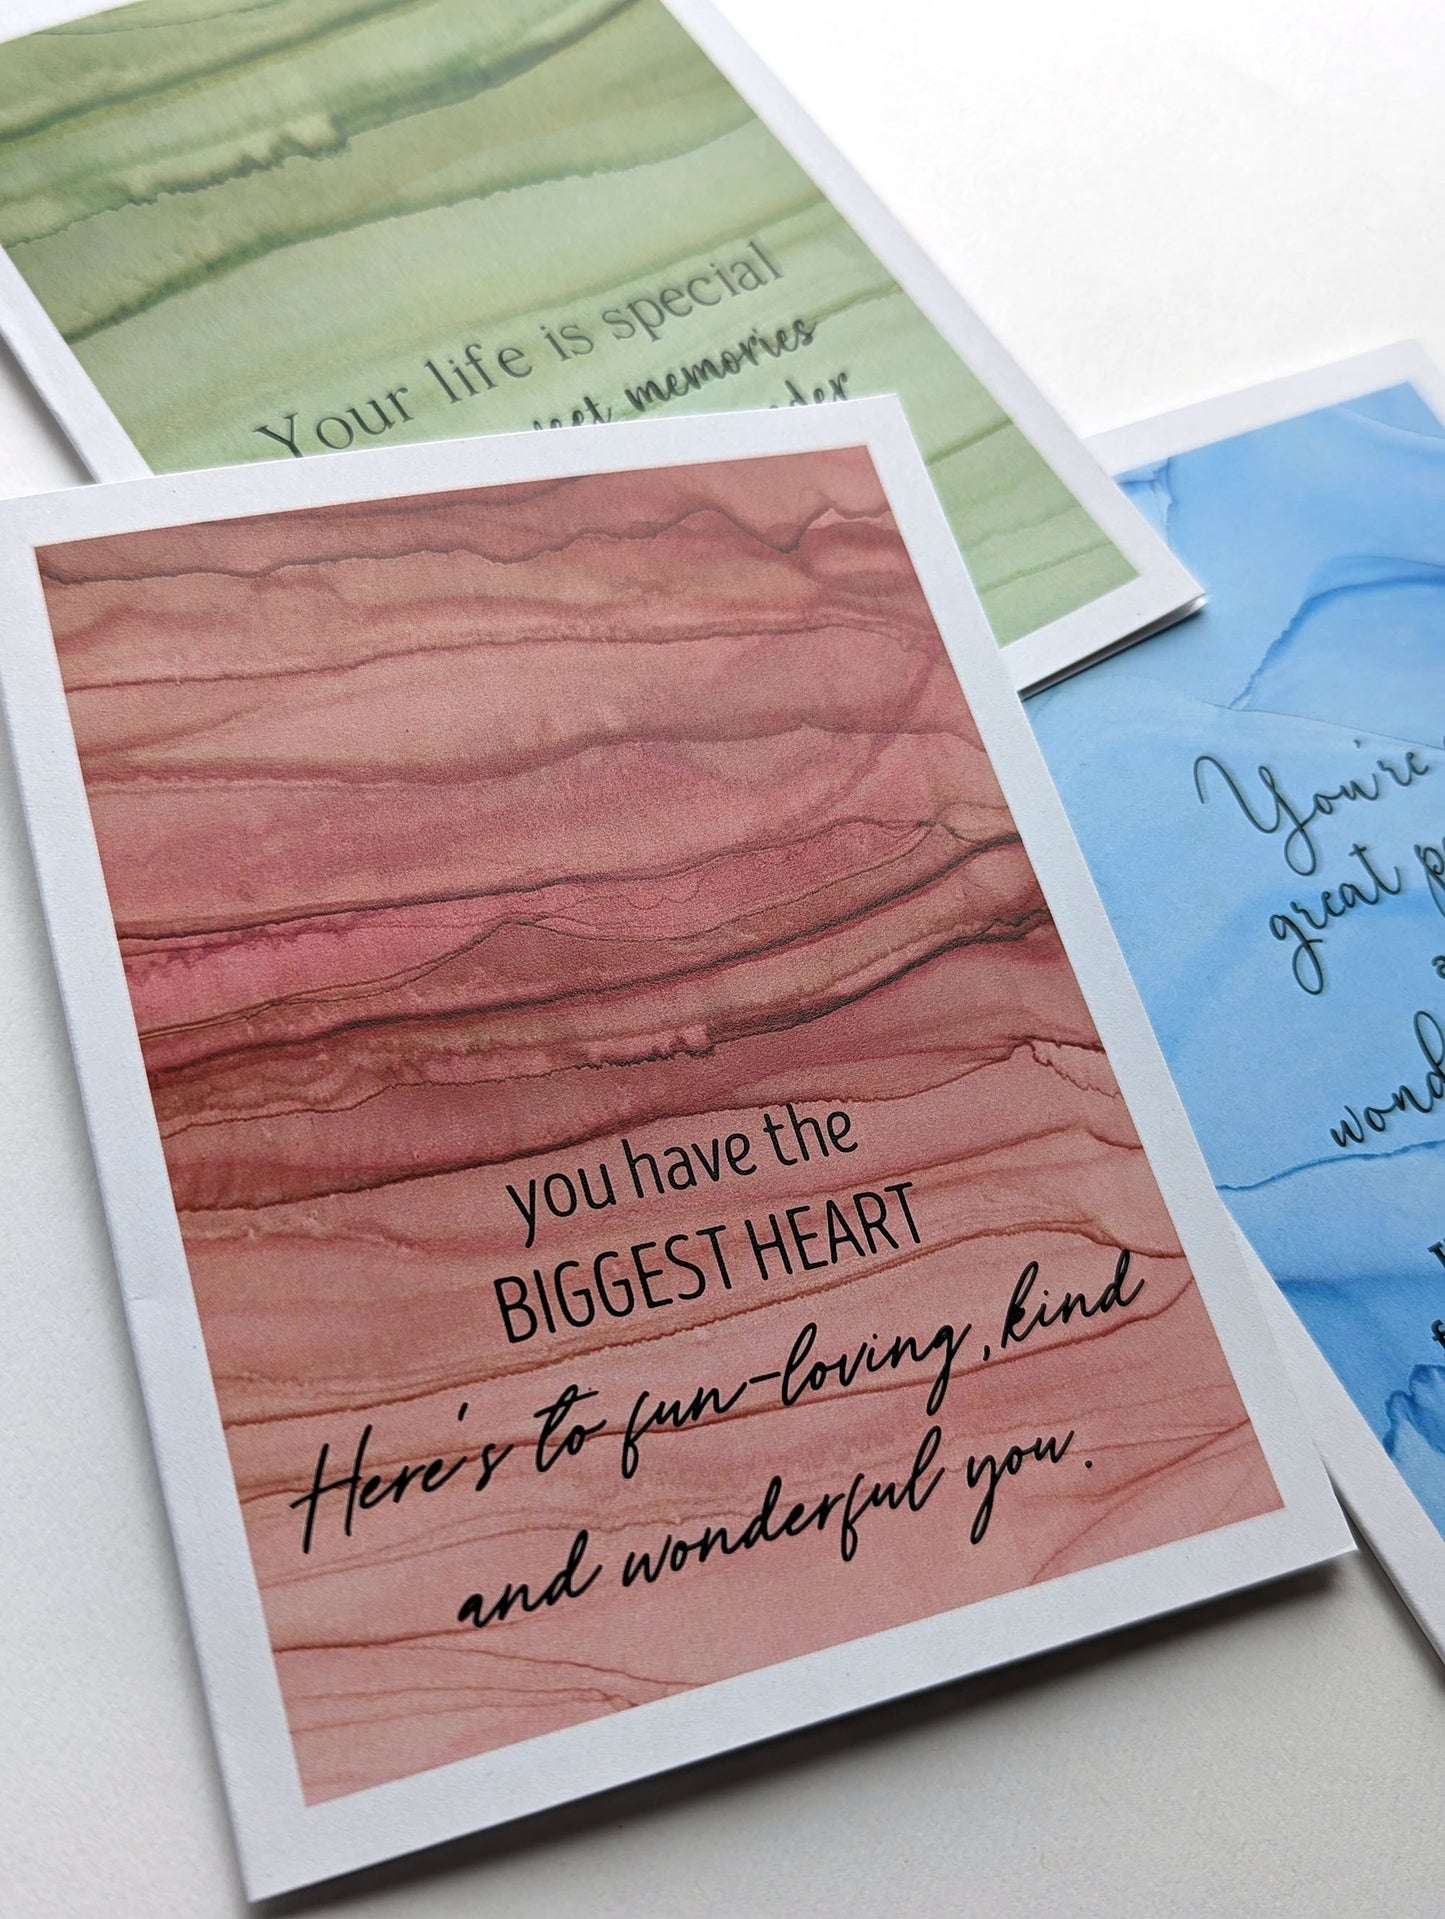 Your life is special
memories
you have the
BIGGEST HEART
Here's to fun-loving, kind
and wonderful you.
You're
great